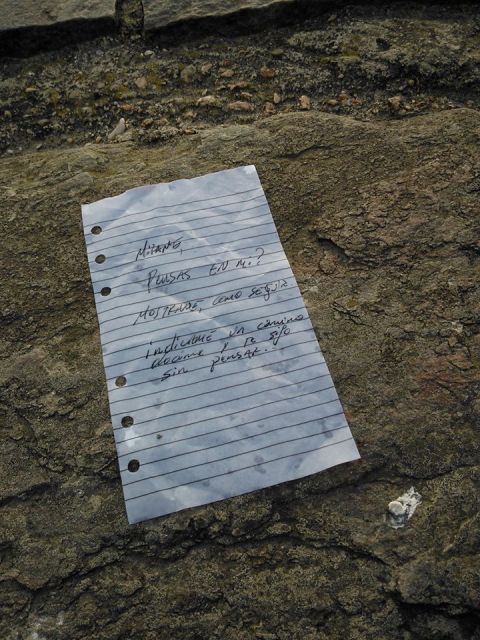 Mirame,
PENSAS EN MI?
MOSTRAME, como SEGUIR
indicame un camino
y te sigo
sin pensar.